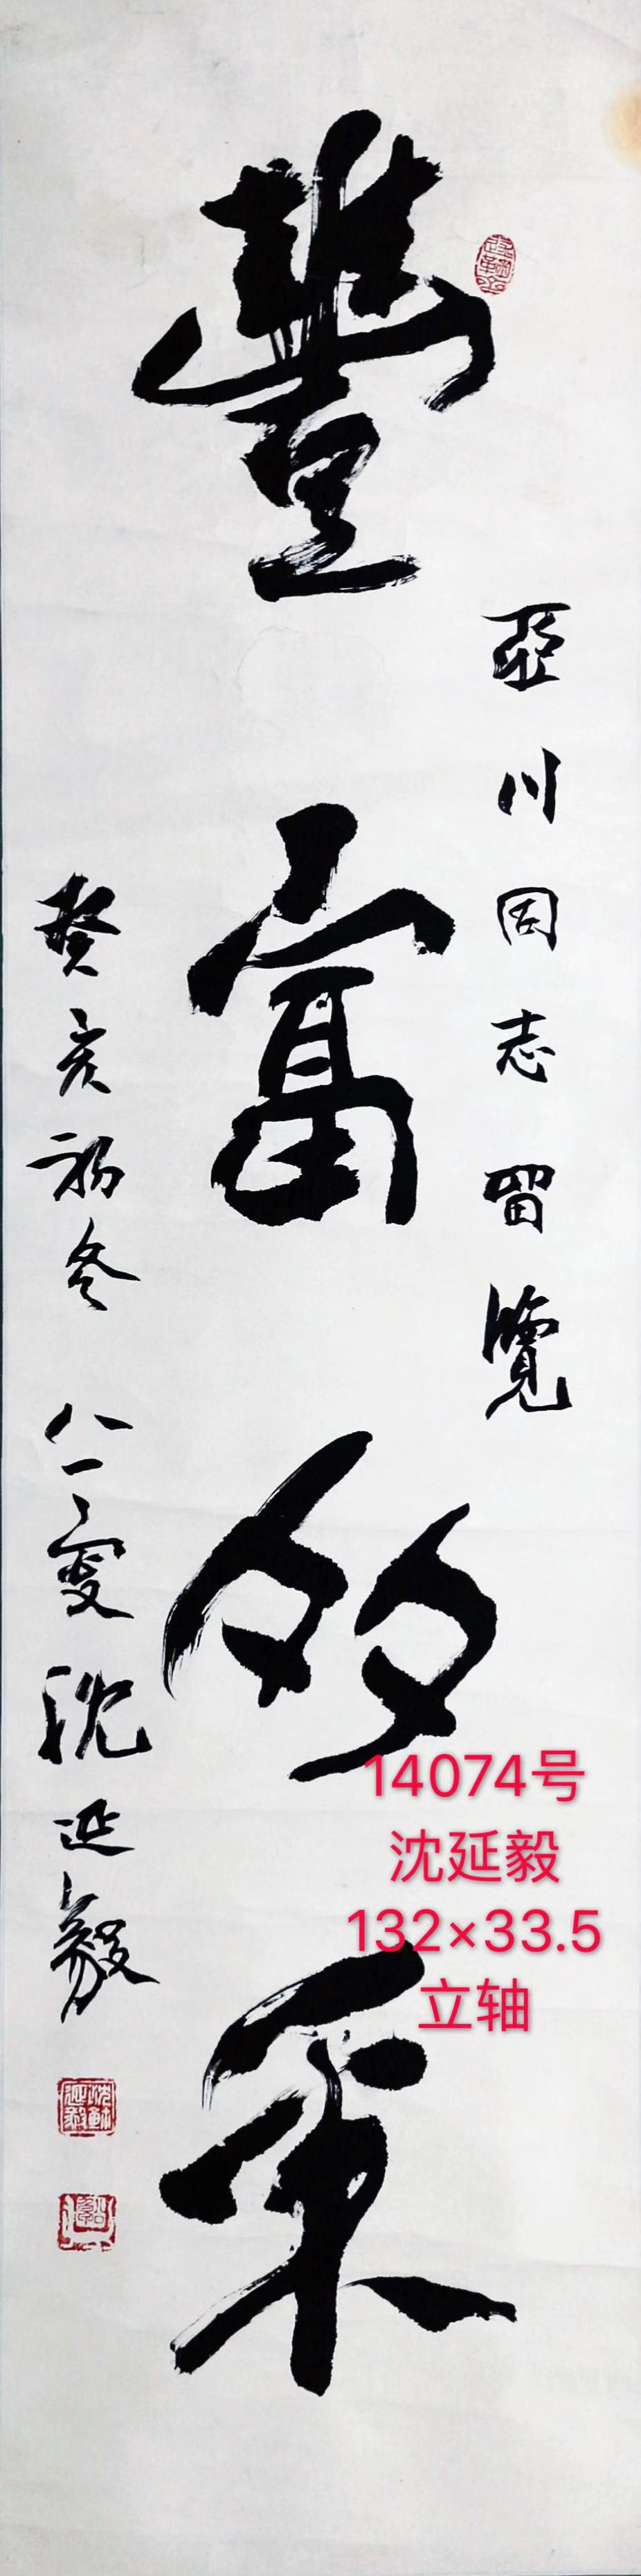 亞川同志留覽
豐富多采
癸亥初冬八一叟沈延毅
14074号
沈延毅
132×33.5
立轴